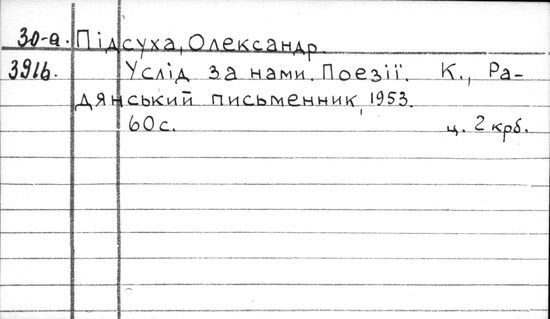 30-а. Підсуха, Олександр.
3916. Услід за нами. Поезії. К., Ра-
дянський письменник, 1953.
60с. ц. 2 крб.